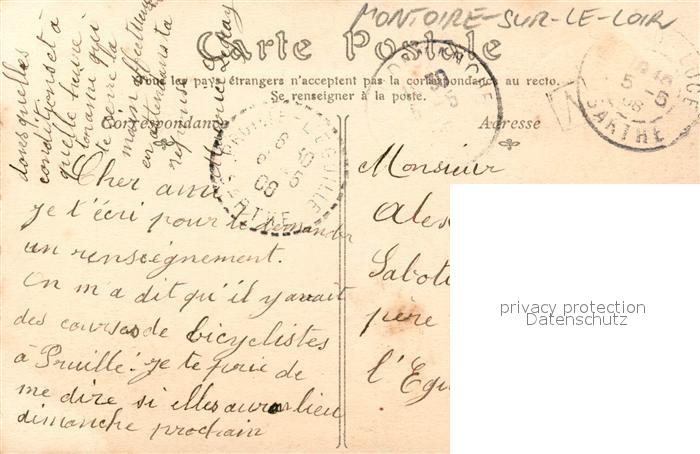 MONTOIRE-SUR-LE-LOIR
Carte Postale
Tous les pays étrangers n'acceptent pas la correspondance au recto.
Se renseigner à la poste.
Correspondance
Adresse
PRUILLÉ-L'ÉGUILLÉ
SARTHE
LUCÉ
5-5
08
SARTHE
Cher ami
je t'écri pour te demander
un renseignement.
On m'a dit qu'il y aurait
des courses de bicyclistes
à Pruillé. je te prie de
me dire si elles auron lieu
dimanche prochain
dans quelles
conditions et à
quelle heure
ton ami qui
te serre la
main
en attendant ta
réponse
Monsieur
Alex
Saboti
père
l'Egu
privacy protection
Datenschutz